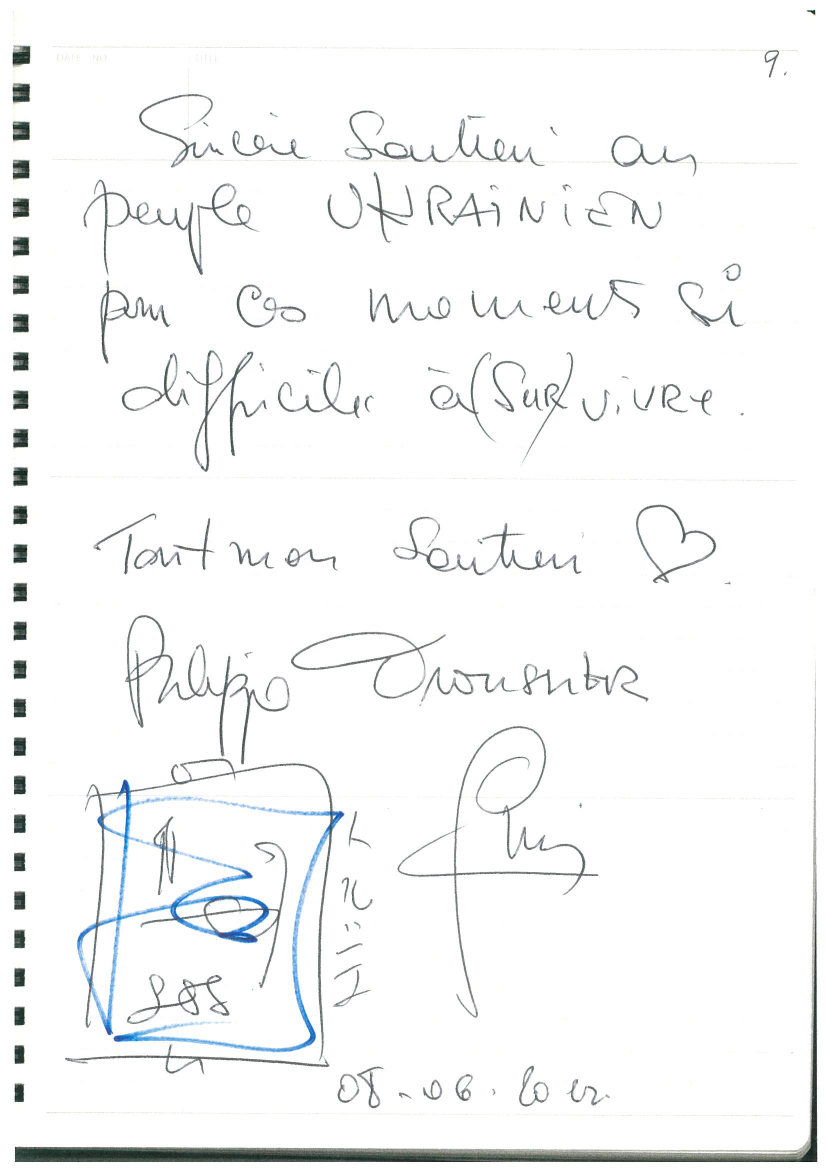 DATE NO. TITLE
9.
Sincère Soutien au
peuple UKRAiNiEN
pour ces moments si
difficiles à (SUR)ViVRE.
Tout mon Soutien ♡.
Philippe
08-06.2022.